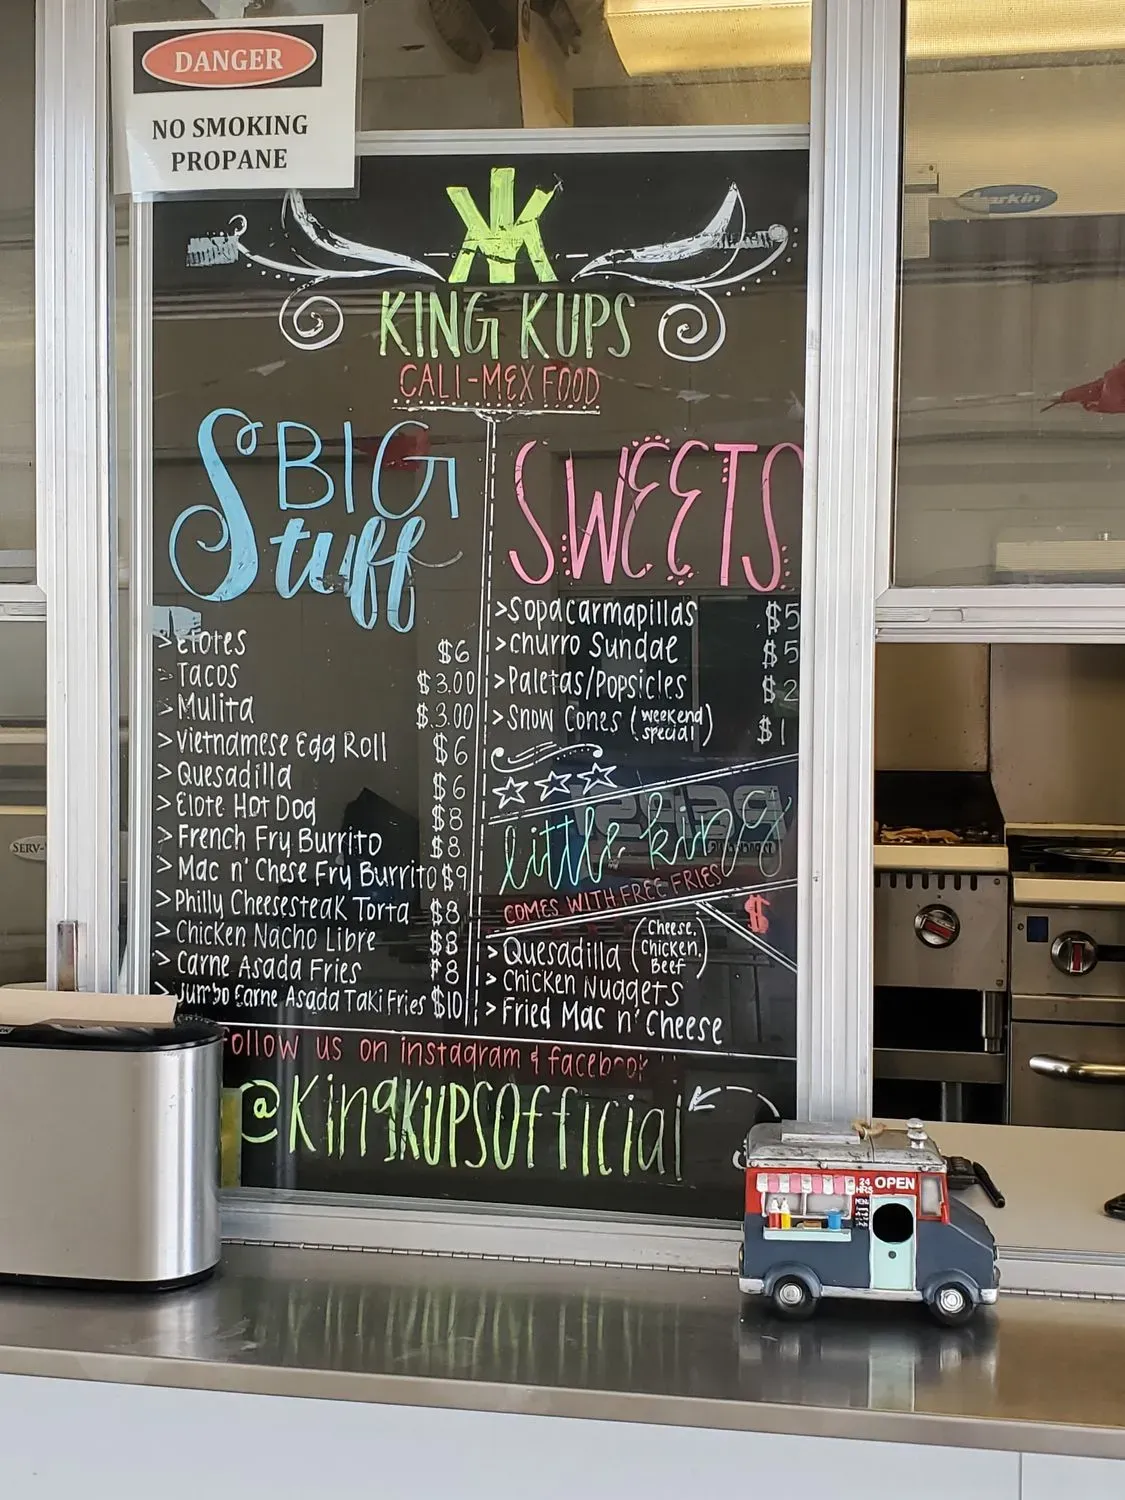 DANGER
NO SMOKING
PROPANE
KING KUPS
CALI-MEX FOOD
BIG
Stuff
> Elotes $6
> Tacos $3.00
> Mulita $3.00
> Vietnamese Egg Roll $6
> Quesadilla $6
> Elote Hot Dog $8
> French Fry Burrito $8
> Mac n' Chese Fry Burrito $9
> Philly Cheesesteak Torta $8
> Chicken Nacho Libre $8
> Carne Asada Fries $8
> Jumbo Carne Asada Taki Fries $10
SWEETS
> Sopacarmapillas $5
> Churro Sundae $5
> Paletas/Popsicles $2
> Snow Cones (weekend special) $1
little king
COMES WITH FREE FRIES
$
> Quesadilla (Cheese, Chicken, Beef)
> Chicken Nuggets
> Fried Mac n' Cheese
Follow us on instagram & facebook
@KingKupsOfficial
Larkin
SERV-
24 HRS OPEN
MENU